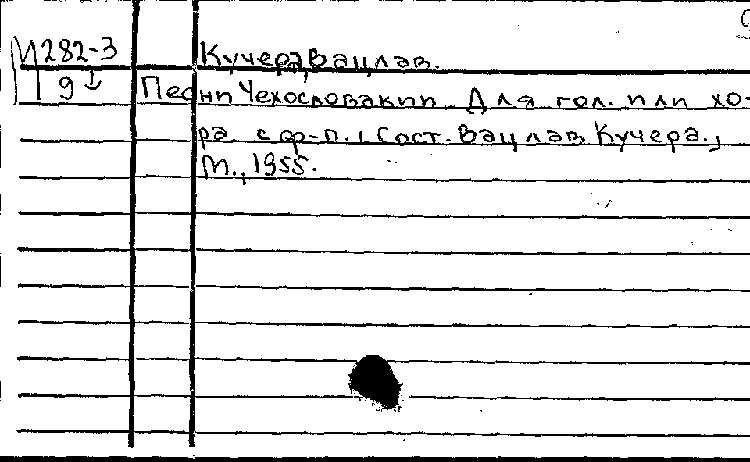 М282-3 Кучера, Вацлав.
9 Песни Чехословакии. Для гол. или хо-
ра с ф-п., Сост. Вацлав Кучера.,
М., 1955.